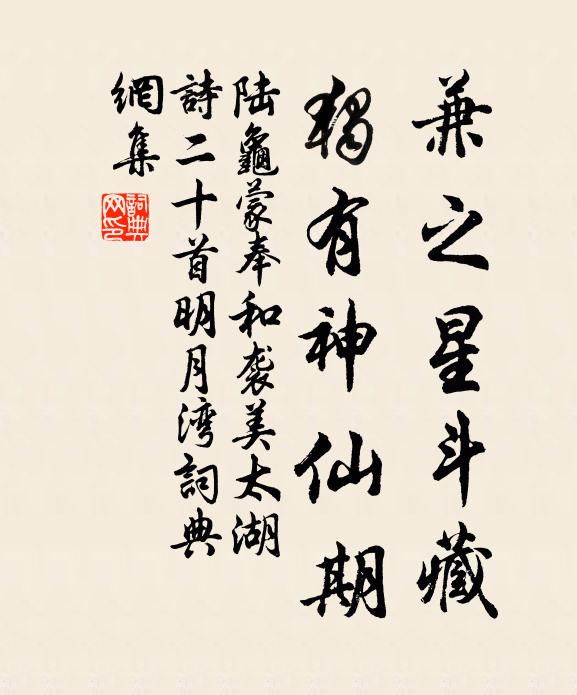 兼之星斗藏
獨有神仙期
陆龜蒙奉和袭美太湖
詩二十首明月湾詞典
網集
詞典
网印